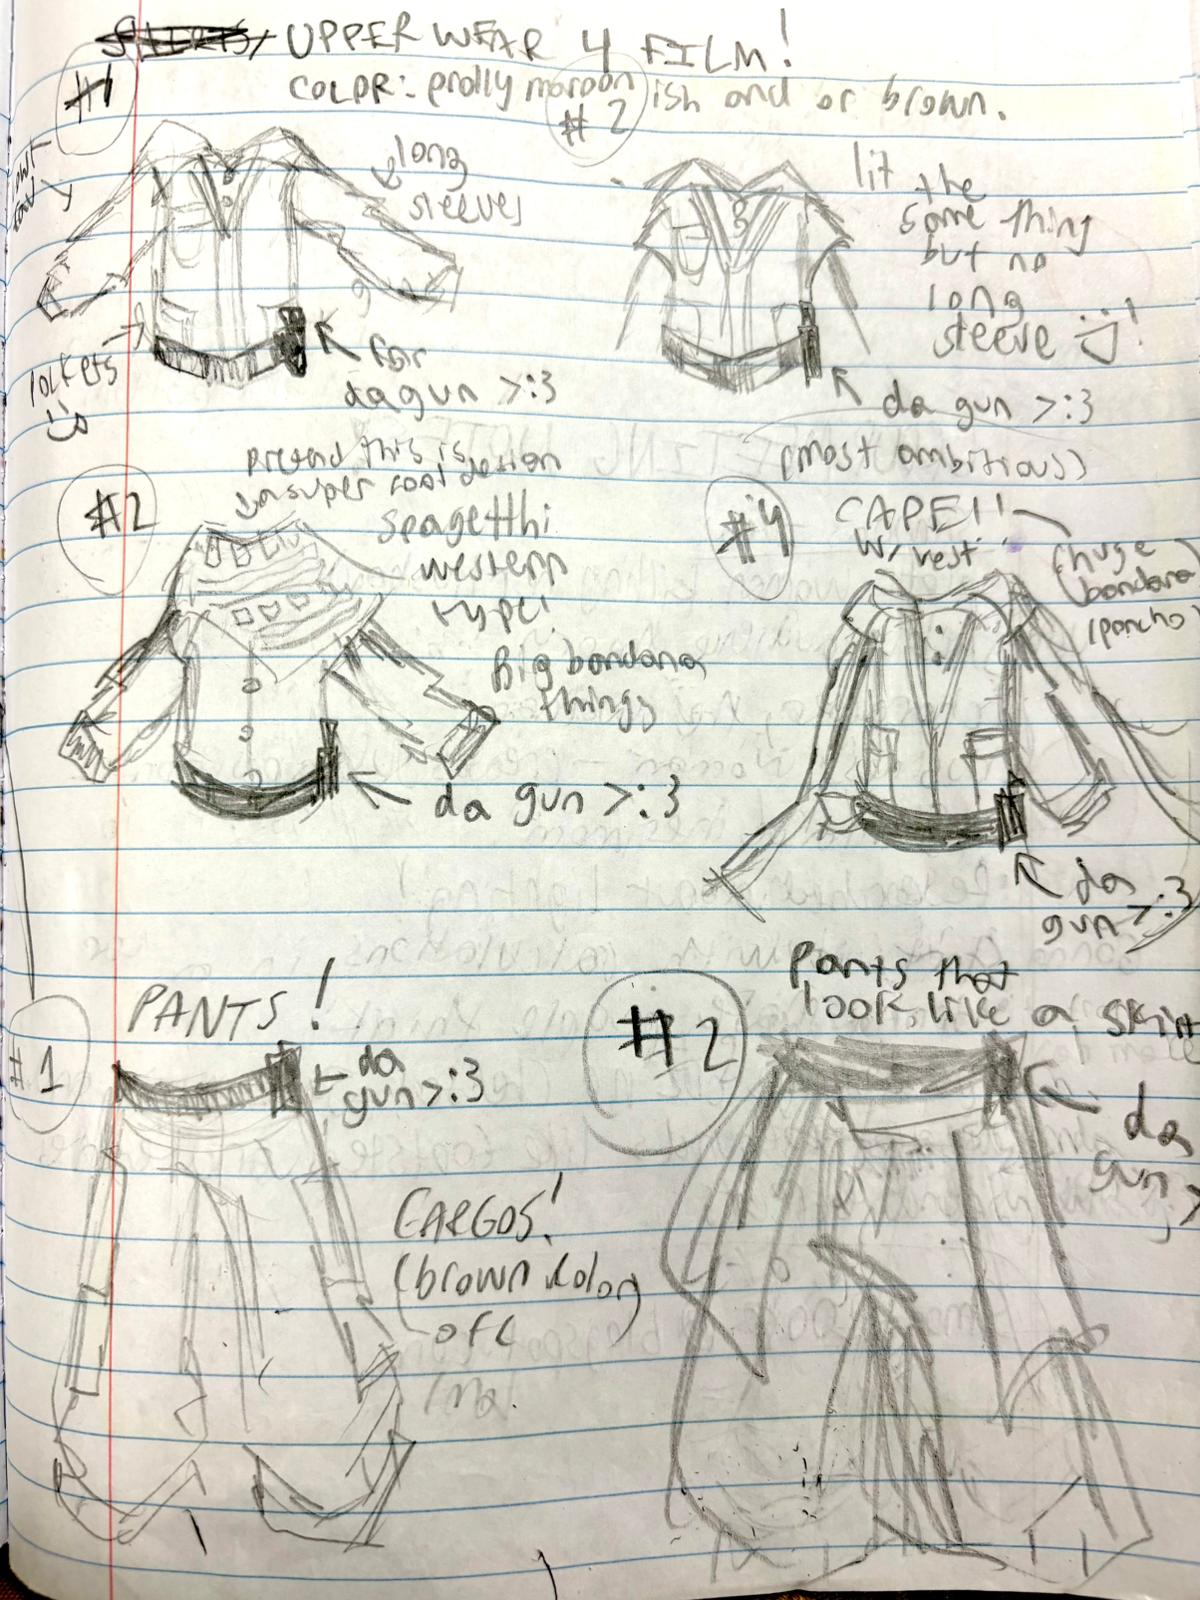 UPPER WEAR 4 FILM!
COLOR: prolly maroon ish and or brown.
#1
long
sleeves
pockets
:)
for
da gun >:3
#2
lit the
same thing
but no
long
sleeve :)!
da gun >:3
#2
pretend this is
a super cool design
spagetthi
western
type!
Big bandana
thingy
da gun >:3
(most ambitious)
#4
CAPE!!
w/ vest
(huge
bandana
/poncho)
da
gun >:3
PANTS!
#1
da
gun >:3
CARGOS!
(brown color)
ofc
#2
pants that
look like a skirt
da
gun >